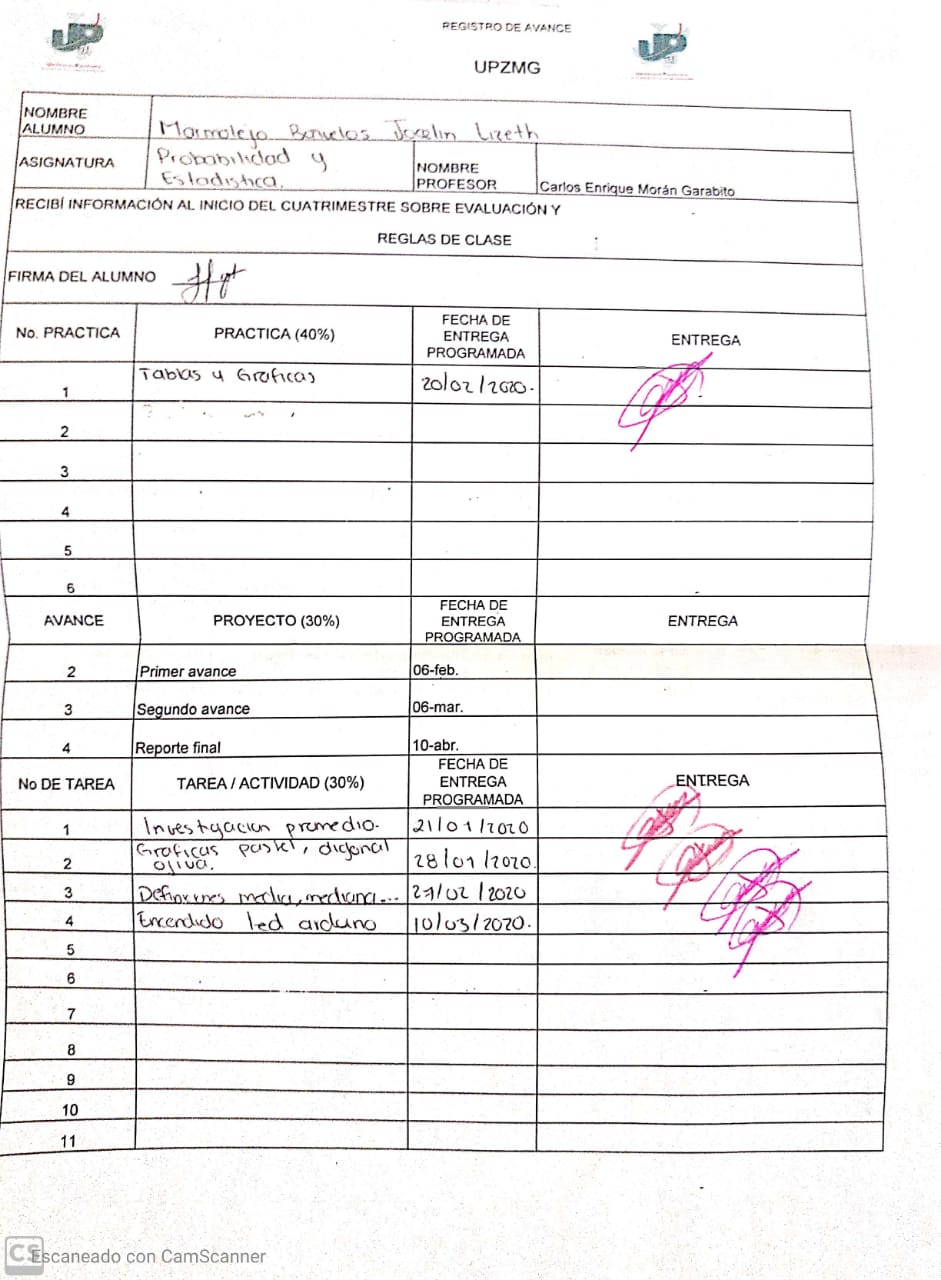 REGISTRO DE AVANCE
UPZMG
NOMBRE ALUMNO Marmolejo Bañuelos Jocelin Lizeth
ASIGNATURA Probabilidad y Estadistica. NOMBRE PROFESOR Carlos Enrique Morán Garabito
RECIBÍ INFORMACIÓN AL INICIO DEL CUATRIMESTRE SOBRE EVALUACIÓN Y
REGLAS DE CLASE
FIRMA DEL ALUMNO
No. PRACTICA PRACTICA (40%) FECHA DE ENTREGA PROGRAMADA ENTREGA
1 Tablas y Graficas 20/02/2020.
2
3
4
5
6
AVANCE PROYECTO (30%) FECHA DE ENTREGA PROGRAMADA ENTREGA
2 Primer avance 06-feb.
3 Segundo avance 06-mar.
4 Reporte final 10-abr.
No DE TAREA TAREA / ACTIVIDAD (30%) FECHA DE ENTREGA PROGRAMADA ENTREGA
1 Investigacion promedio. 21/01/2020
2 Graficas pastel, digonal ojiva. 28/01/2020.
3 media, mediana... 27/02/2020
4 Encendido led arduno 10/03/2020.
5
6
7
8
9
10
11
CS Escaneado con CamScanner